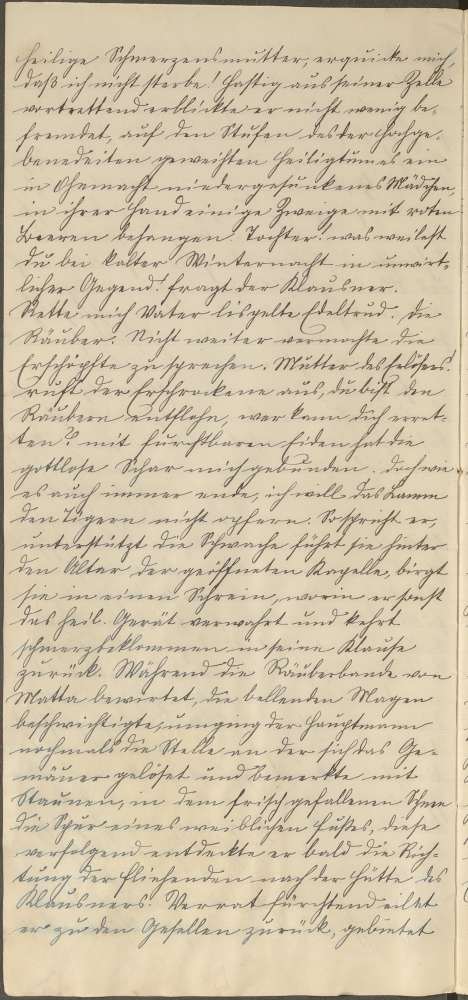 heilige Schmerzensmutter, erquicke mich,
daß ich nicht sterbe! Hastig aus seiner Zelle
vortrettend erblickte er nicht wenig be-
fremdet, auf den Stufen des der Hochge-
benedeiten geweihten Heiligtumes ein
in Ohnmacht niedergesunkenes Mädchen,
in ihrer Hand einige Zweige mit roten
Beeren behangen. Tochter! was weilest
du bei kalter Winternacht in unwirt-
licher Gegend! fragt der Klausner.
Rette mich Vater lispelte Edeltrud. Die
Räuber. Nicht weiter vermochte die
Erschöpfte zu sprechen. Mutter des Erlösers!
ruft der Erschrockene aus, du bist den
Räubern entflohn, wer kann dich erret-
ten? mit furchtbaren Eiden hat die
gottlose Schar mich gebunden. Doch wie
es auch immer ende, ich will das Lamm
den Tigern nicht opfern. So spricht er,
unterstützt die Schwache führt sie hinter
den Altar der geöffneten Kapelle, birgt
sie in einen Schrein, worin er sonst
das heil. Gerät verwahrt und kehrt
schmerzbeklommen in seine Klause
zurück. Während die Räuberbande von
Matta bewirtet, die bellenden Magen
beschwichtigte, umging der Hauptmann
nochmals die Stelle an der sich das Ge-
mäuer gelöset und bemerkte mit
Staunen, in dem frisch gefallenen Schnee
die Spur eines weiblichen Fußes, diese
verfolgend entdeckte er bald die Rich-
tung der Fliehenden nach der Hütte des
Klausners. Verrat fürchtend eilet
er zu den Gesellen zurück, gebietet